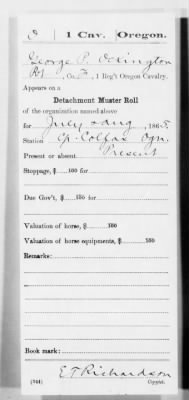 1 Cav. Oregon.
George P.
Pvt, Co. 1 Reg't Oregon Cavalry.
Appears on a
Detachment Muster Roll
of the organization named above
for July & Aug, 1865.
Station Cp. Colfax Ogn.
Present or absent Present
Stoppage, $ 100 for
Due Gov't, $ 100 for
Valuation of horse, $ 100
Valuation of horse equipments, $ 100
Remarks:
Book mark:
E T Richardson
(344) Copyist.